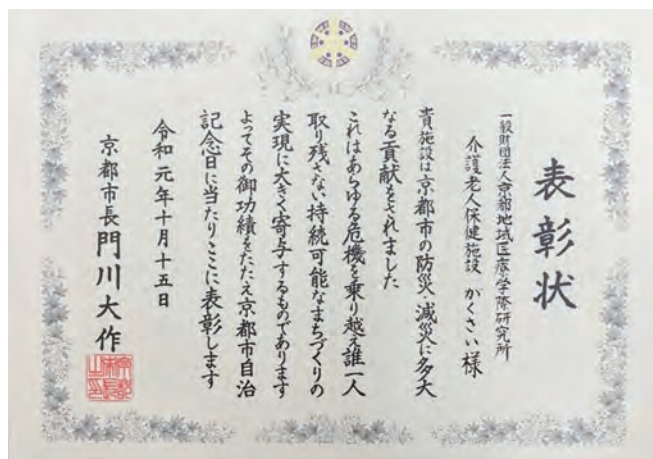 表彰状
一般財団法人京都地域医療学際研究所
介護老人保健施設 がくさい様
貴施設は京都市の防災・減災に多大
なる貢献をされました
これはあらゆる危機を乗り越え誰一人
取り残さない持続可能なまちづくりの
実現に大きく寄与するものであります
よってその御功績をたたえ京都市自治
記念日に当たりここに表彰します
令和元年十月十五日
京都市長 門川大作